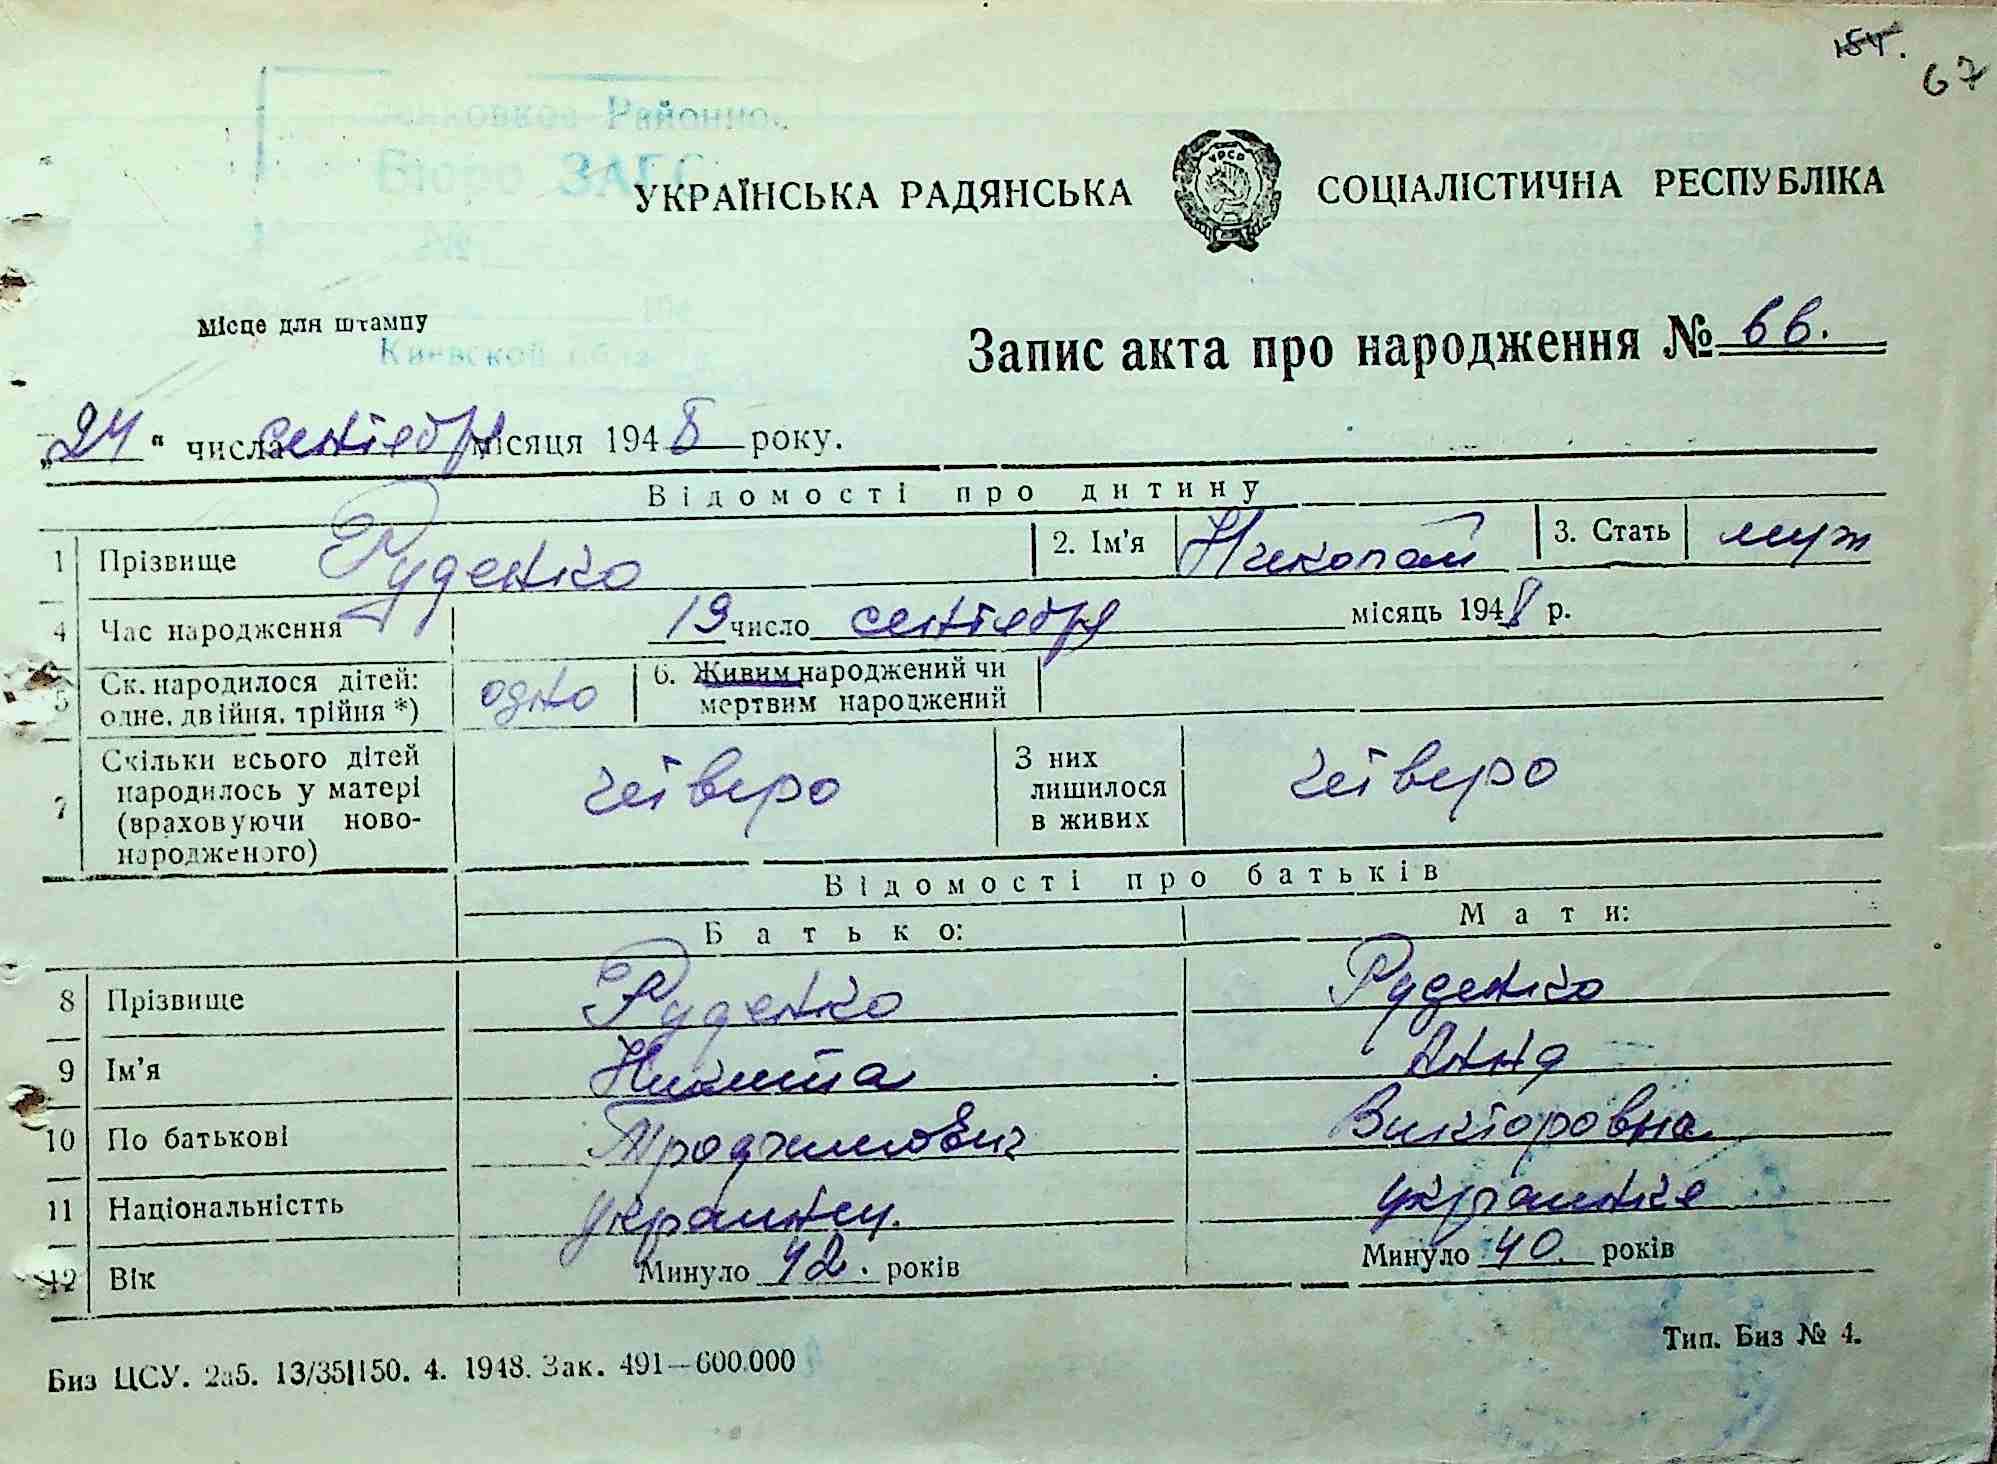 154.
67
Районно
Бюро ЗАГС
№
УКРАЇНСЬКА РАДЯНСЬКА СОЦІАЛІСТИЧНА РЕСПУБЛІКА
УРСР
Місце для штампу
Киевской обла
Запис акта про народження № 66.
„24“ числа сентября місяця 1948 року.
Відомості про дитину
1 Прізвище Руденко 2. Ім'я Николай 3. Стать муж
4 Час народження 19 число сентября місяць 1948 р.
5 Ск. народилося дітей: одно 6. Живим народжений чи
одне, двійня, трійня *) мертвим народжений
7 Скільки всього дітей
народилось у матері
(враховуючи ново-
народженого)
четверо
З них
лишилося
в живих
четверо
Відомості про батьків
Батько: Мати:
8 Прізвище Руденко Руденко
9 Ім'я Никита Анна
10 По батькові Викторовна
11 Національністть украинец. украинка
12 Вік Минуло 42. років Минуло 40. років
Биз ЦСУ. 2а5. 13/35|150. 4. 1948. Зак. 491—600.000
Тип. Биз № 4.